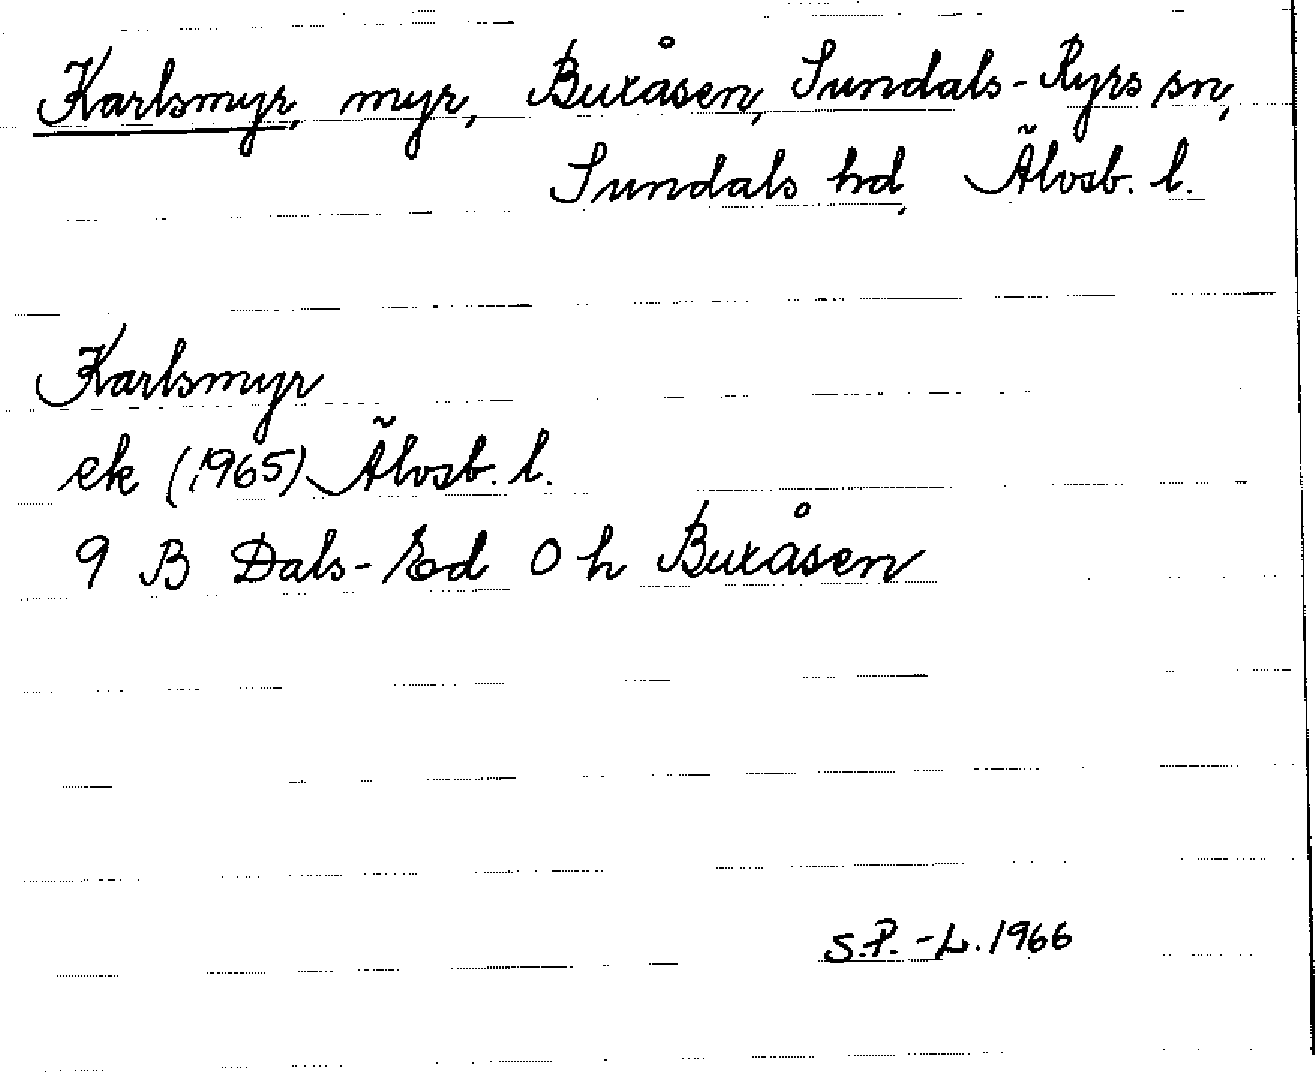 Karlsmyr, myr, Buxåsen, Sundals-Ryrs sn,
Sundals hd, Älvsb. l.
Karlsmyr
ek (1965) Älvsb. l.
9 B Dals-Ed 0 h Buxåsen
S.P.-L. 1966